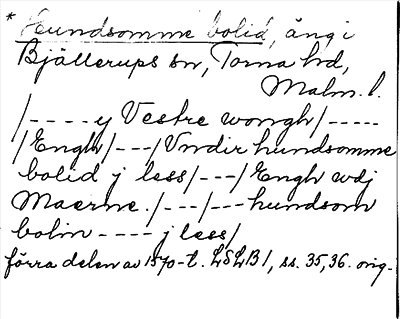 * Hundsomme bolid, äng i
Bjällerups sn, Torna hd,
Malm. l.
/---- y Vestre wongh/-----
/Engh/---/Vndir hundsomme
bolid j less/---/Engh wdj
Maerne./---/---hundsom
bolin ---- j less/
förra delen av 1570-t. LSLB1, ss. 35, 36. orig.